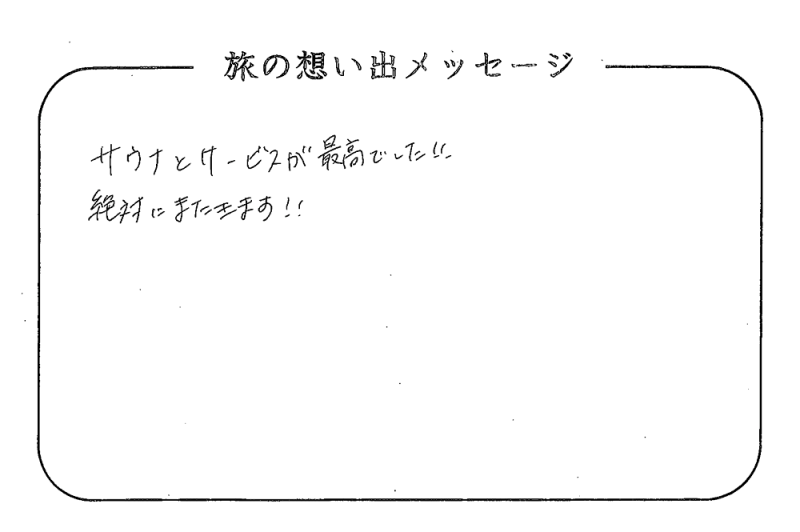 旅の想い出メッセージ
サウナとサービスが最高でした!!
絶対にまたきます!!